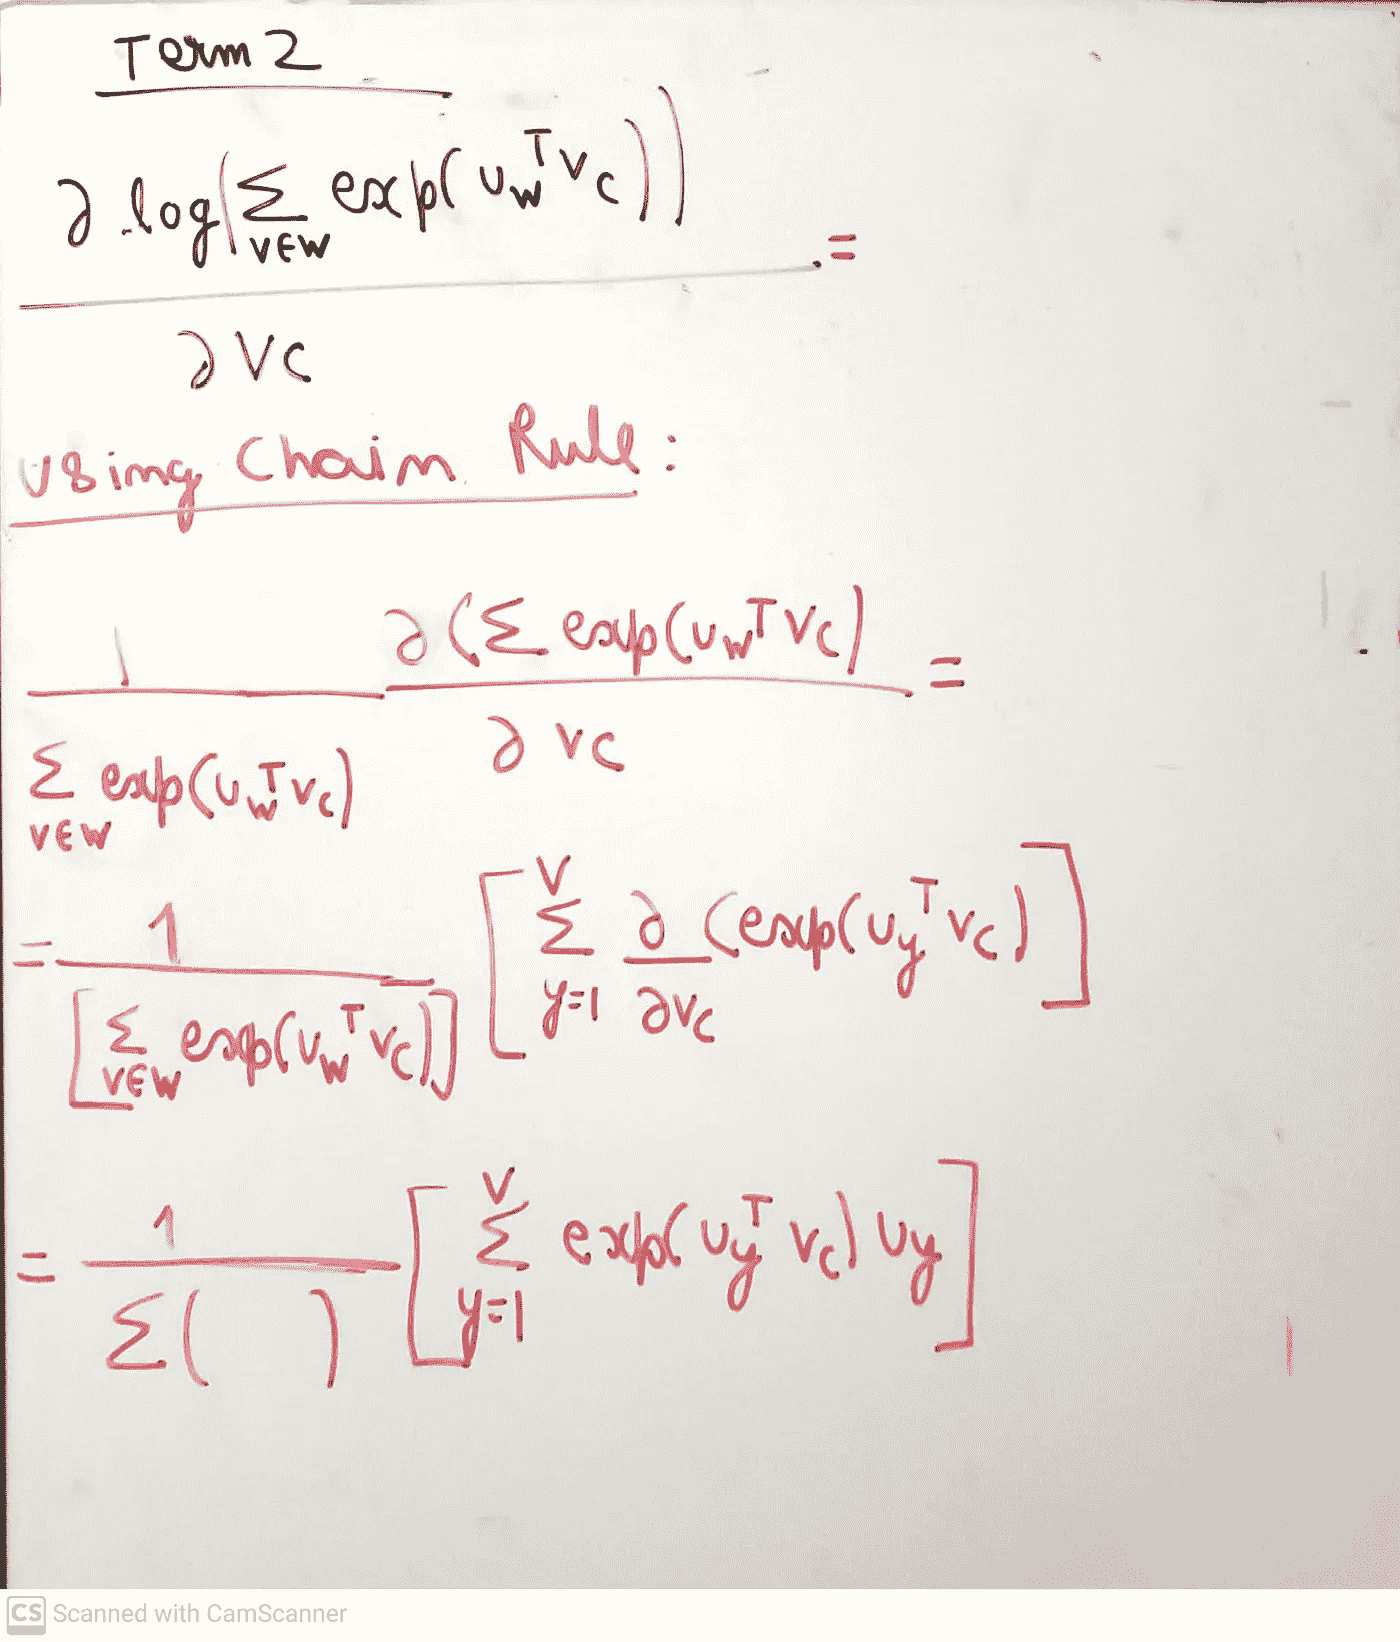 Term 2
∂ log(Σ exp(u_w^T v_c)) =
v∈w
∂vc
Using Chain Rule:
1 ∂(Σ exp(u_w^T v_c) =
Σ exp(u_w^T v_c) ∂vc
v∈w
= 1 [ V Σ y=1 ∂ (exp(u_y^T v_c) ]
[Σ v∈w exp(u_w^T v_c)] ∂v_c
= 1 [ V Σ y=1 exp(u_y^T v_c) u_y ]
Σ( )
CS Scanned with CamScanner